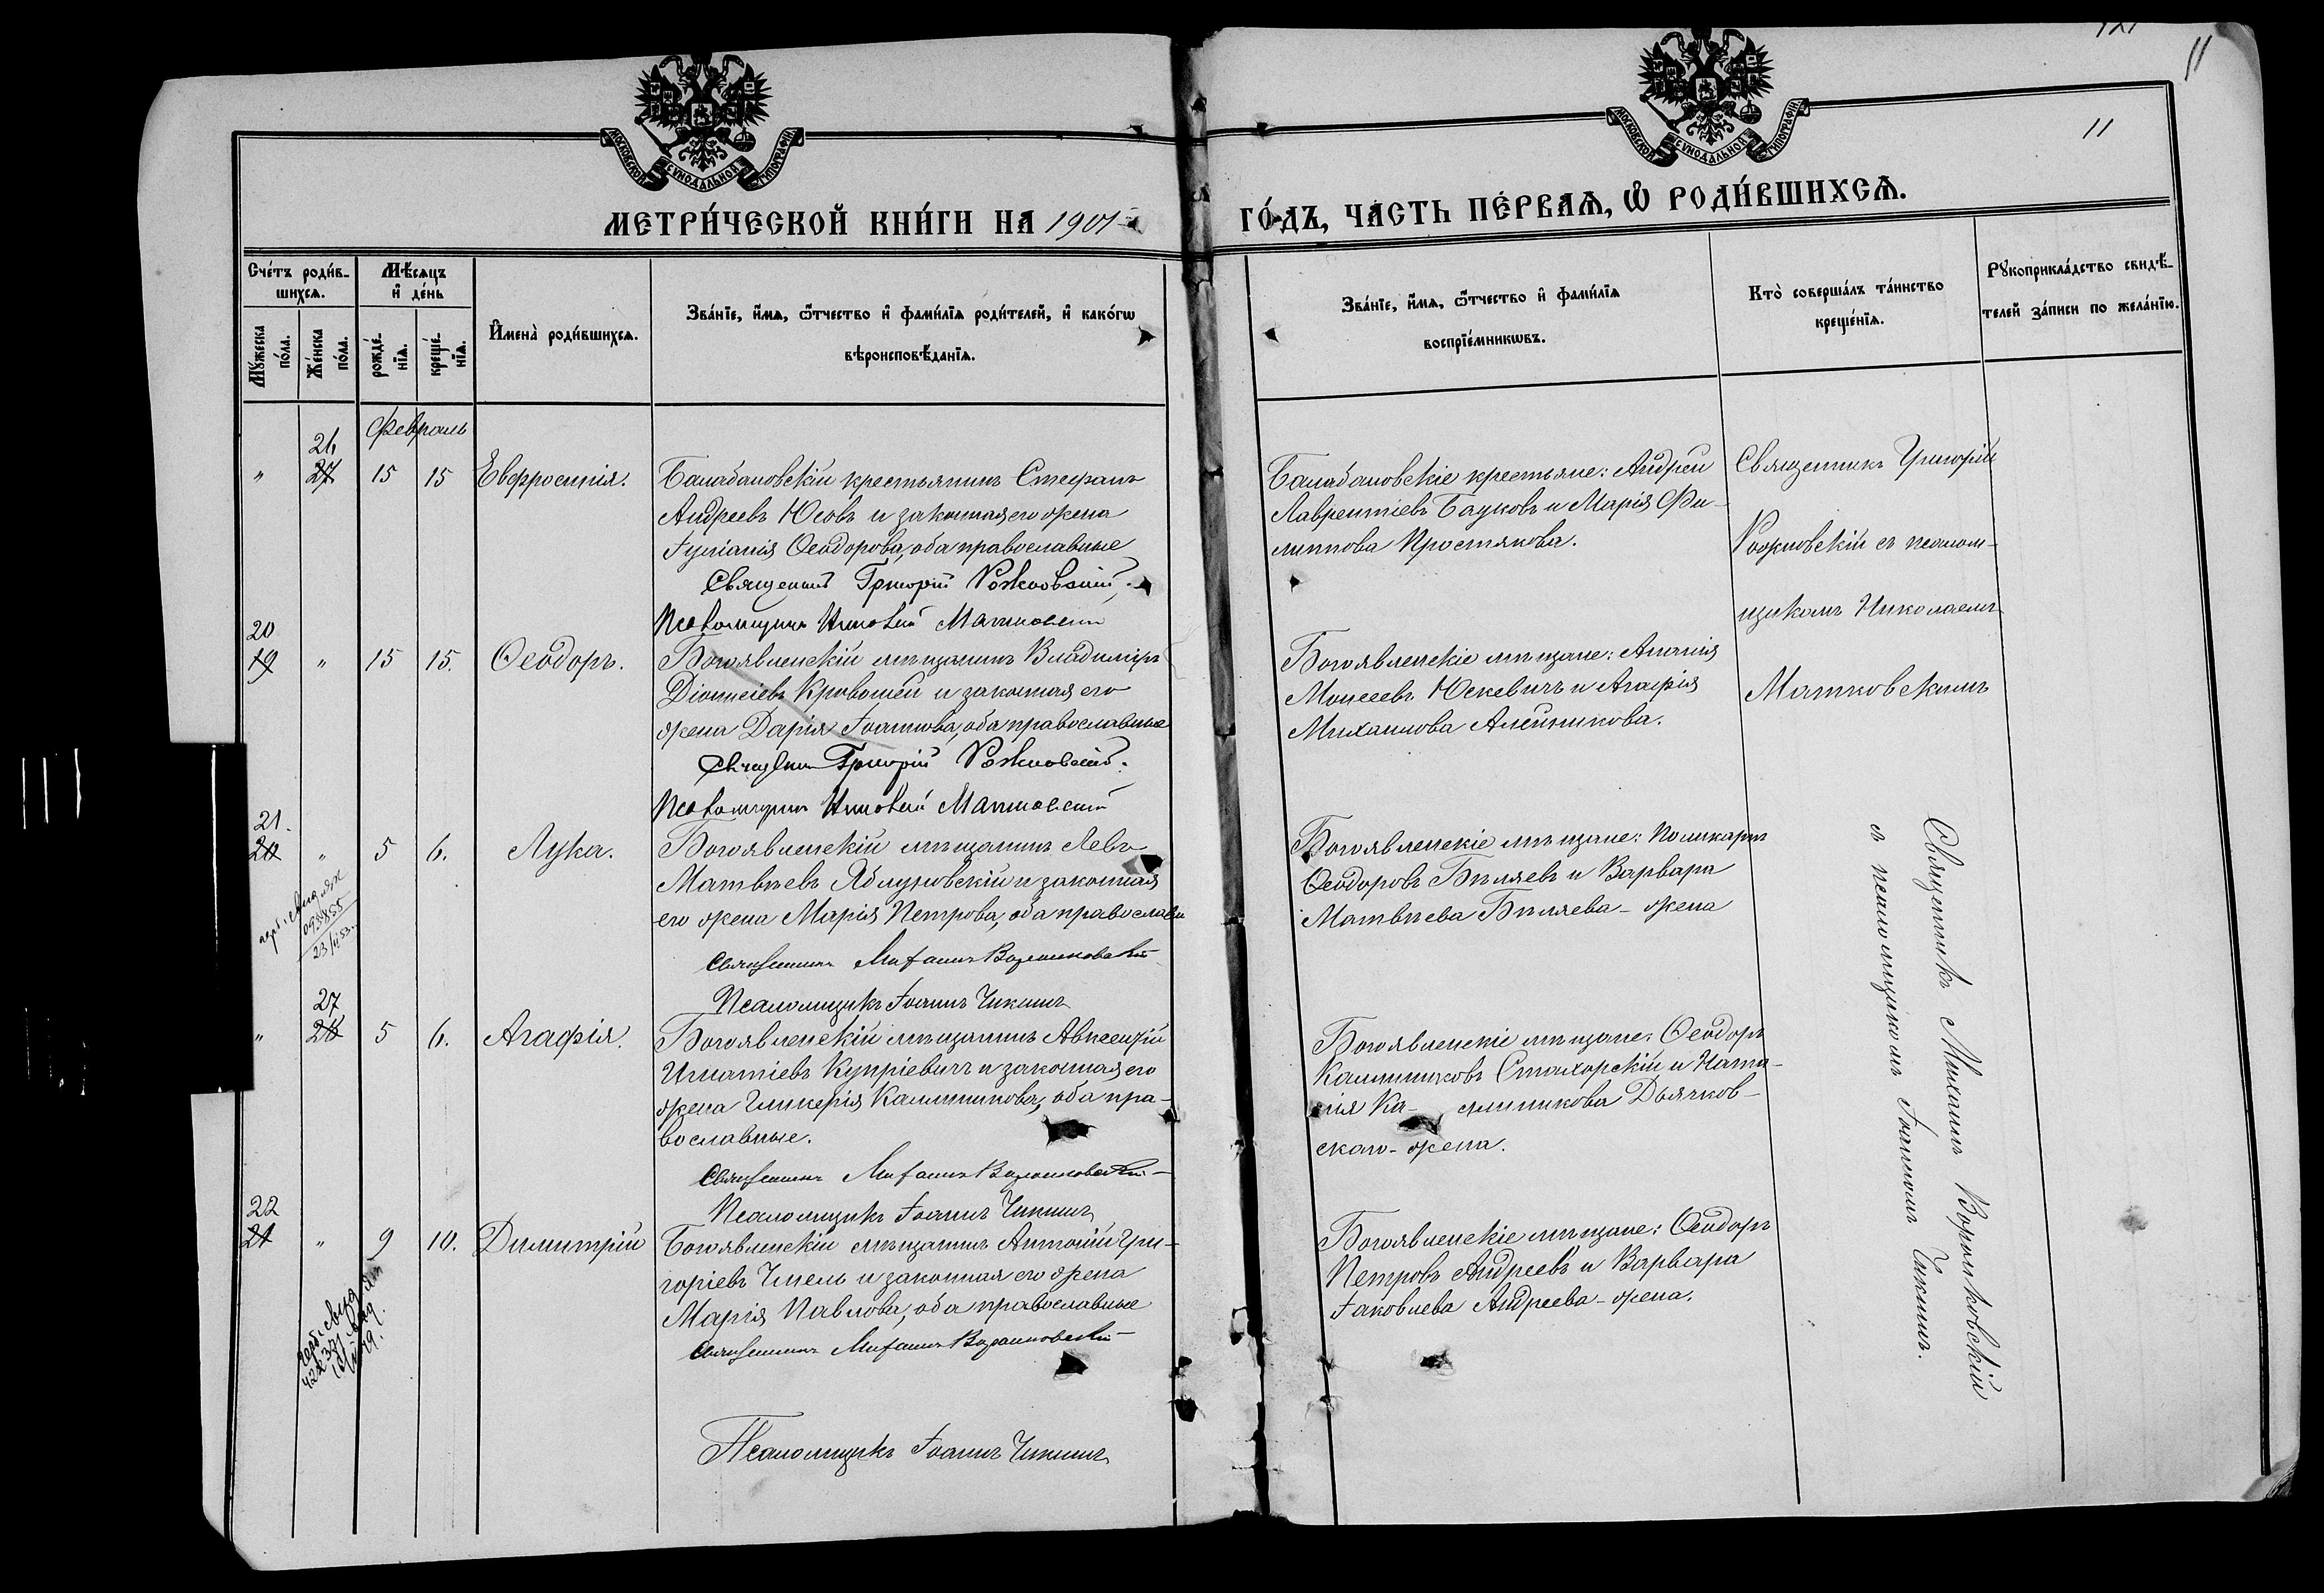 121
11
11
МОСКОВСКОЙ СѴНОДАЛЬНОЙ ТИПОГРАФІИ
МОСКОВСКОЙ СѴНОДАЛЬНОЙ ТИПОГРАФІИ
МЕТРИ́ЧЕСКОЙ КНИ́ГИ НА 1901
ГО́ДЪ, ЧА́СТЬ ПЕ́РВАѦ, Ѡ РОДИ́ВШИХСѦ.
Сче́тъ роди́в-
шихсѧ.
Мꙋ́жеска по́ла.
Же́нска по́ла.
Мѣ́сѧцъ и҆ де́нь
рожде́-нїѧ.
креще́-нїѧ.
И҆мена̀ роди́вшихсѧ.
Зва́нїе, и҆́мѧ, ѻ҆́тчество и҆ фами́лїѧ роди́телей, и҆ како́гѡ
вѣроисповѣ́данїѧ.
Зва́нїе, и҆́мѧ, ѻ҆́тчество и҆ фами́лїѧ
воспрїе́мникѡвъ.
Кто̀ соверша́лъ та́инство
креще́нїѧ.
Рꙋкоприкла́дство свидѣ́-
телей за́писи по жела́нїю.
Февраль
26
27 15 15 Евфросинія.
Балабановскій крестьянинъ Стефанъ
Андреевъ Юсовъ и законная его жена
Іуліанія Ѳеодорова, оба православные
Священникъ Григорій Рожновскій.
Псаломщикъ Николай Матковскій
Балабановскіе крестьяне: Андрей
Лаврентіевъ Бауковъ и Марія Фи-
липпова Простякова.
Священникъ Григорій
Рожновскій съ псалом-
щикомъ Николаемъ
Матковскимъ
20
19 " 15 15. Ѳеодоръ.
Богоявленскій мѣщанинъ Владиміръ
Діонисіевъ Кривошей и законная его
жена Дарія Іоаннова, оба православные
Священникъ Григорій Рожновскій.
Псаломщикъ Николай Матковскій
Богоявленскіе мѣщане: Ананія
Моисеевъ Юскевичъ и Агафія
Михаилова Алейникова.
21.
20 " 5 6. Лука.
Богоявленскій мѣщанинъ Левъ
Матвѣевъ Яблуновскій и законная
его жена Марія Петрова, оба православн
Священникъ Михаилъ Воронковскій
Псаломщикъ Іоаннъ Чикишъ
Богоявленскіе мѣщане: Поликарпъ
Ѳеодоровъ Бѣляевъ и Варвара
Матвѣева Бѣляева - жена
27
28 5 6. Агафія.
Богоявленскій мѣщанинъ Авксентій
Игнатіевъ Купріевичъ и законная его
жена Гликерія Калинникова, оба пра-
вославные.
Священникъ Михаилъ Воронковскій
Псаломщикъ Іоаннъ Чикишъ
Богоявленскіе мѣщане: Ѳеодоръ
Калинниковъ Стахорскій и Ната-
лія Ка- линникова Дьячков-
скаго - жена.
22
21 " 9 10. Димитрій
Богоявленскій мѣщанинъ Антоній Гри-
горіевъ Чмель и законная его жена
Марія Павлова, оба православные
Священникъ Михаилъ Воронковскій
Псаломщикъ Іоаннъ Чикишъ
Богоявленскіе мѣщане: Ѳеодоръ
Петровъ Андреевъ и Варвара
Іаковлева Андреева - жена.
Священникъ Михаилъ Воронковскій
съ псаломщикомъ Іоанномъ Чикишъ.